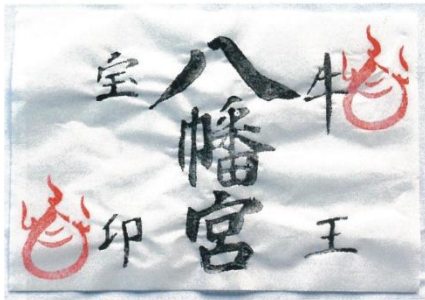 牛王
八幡宮
宝印